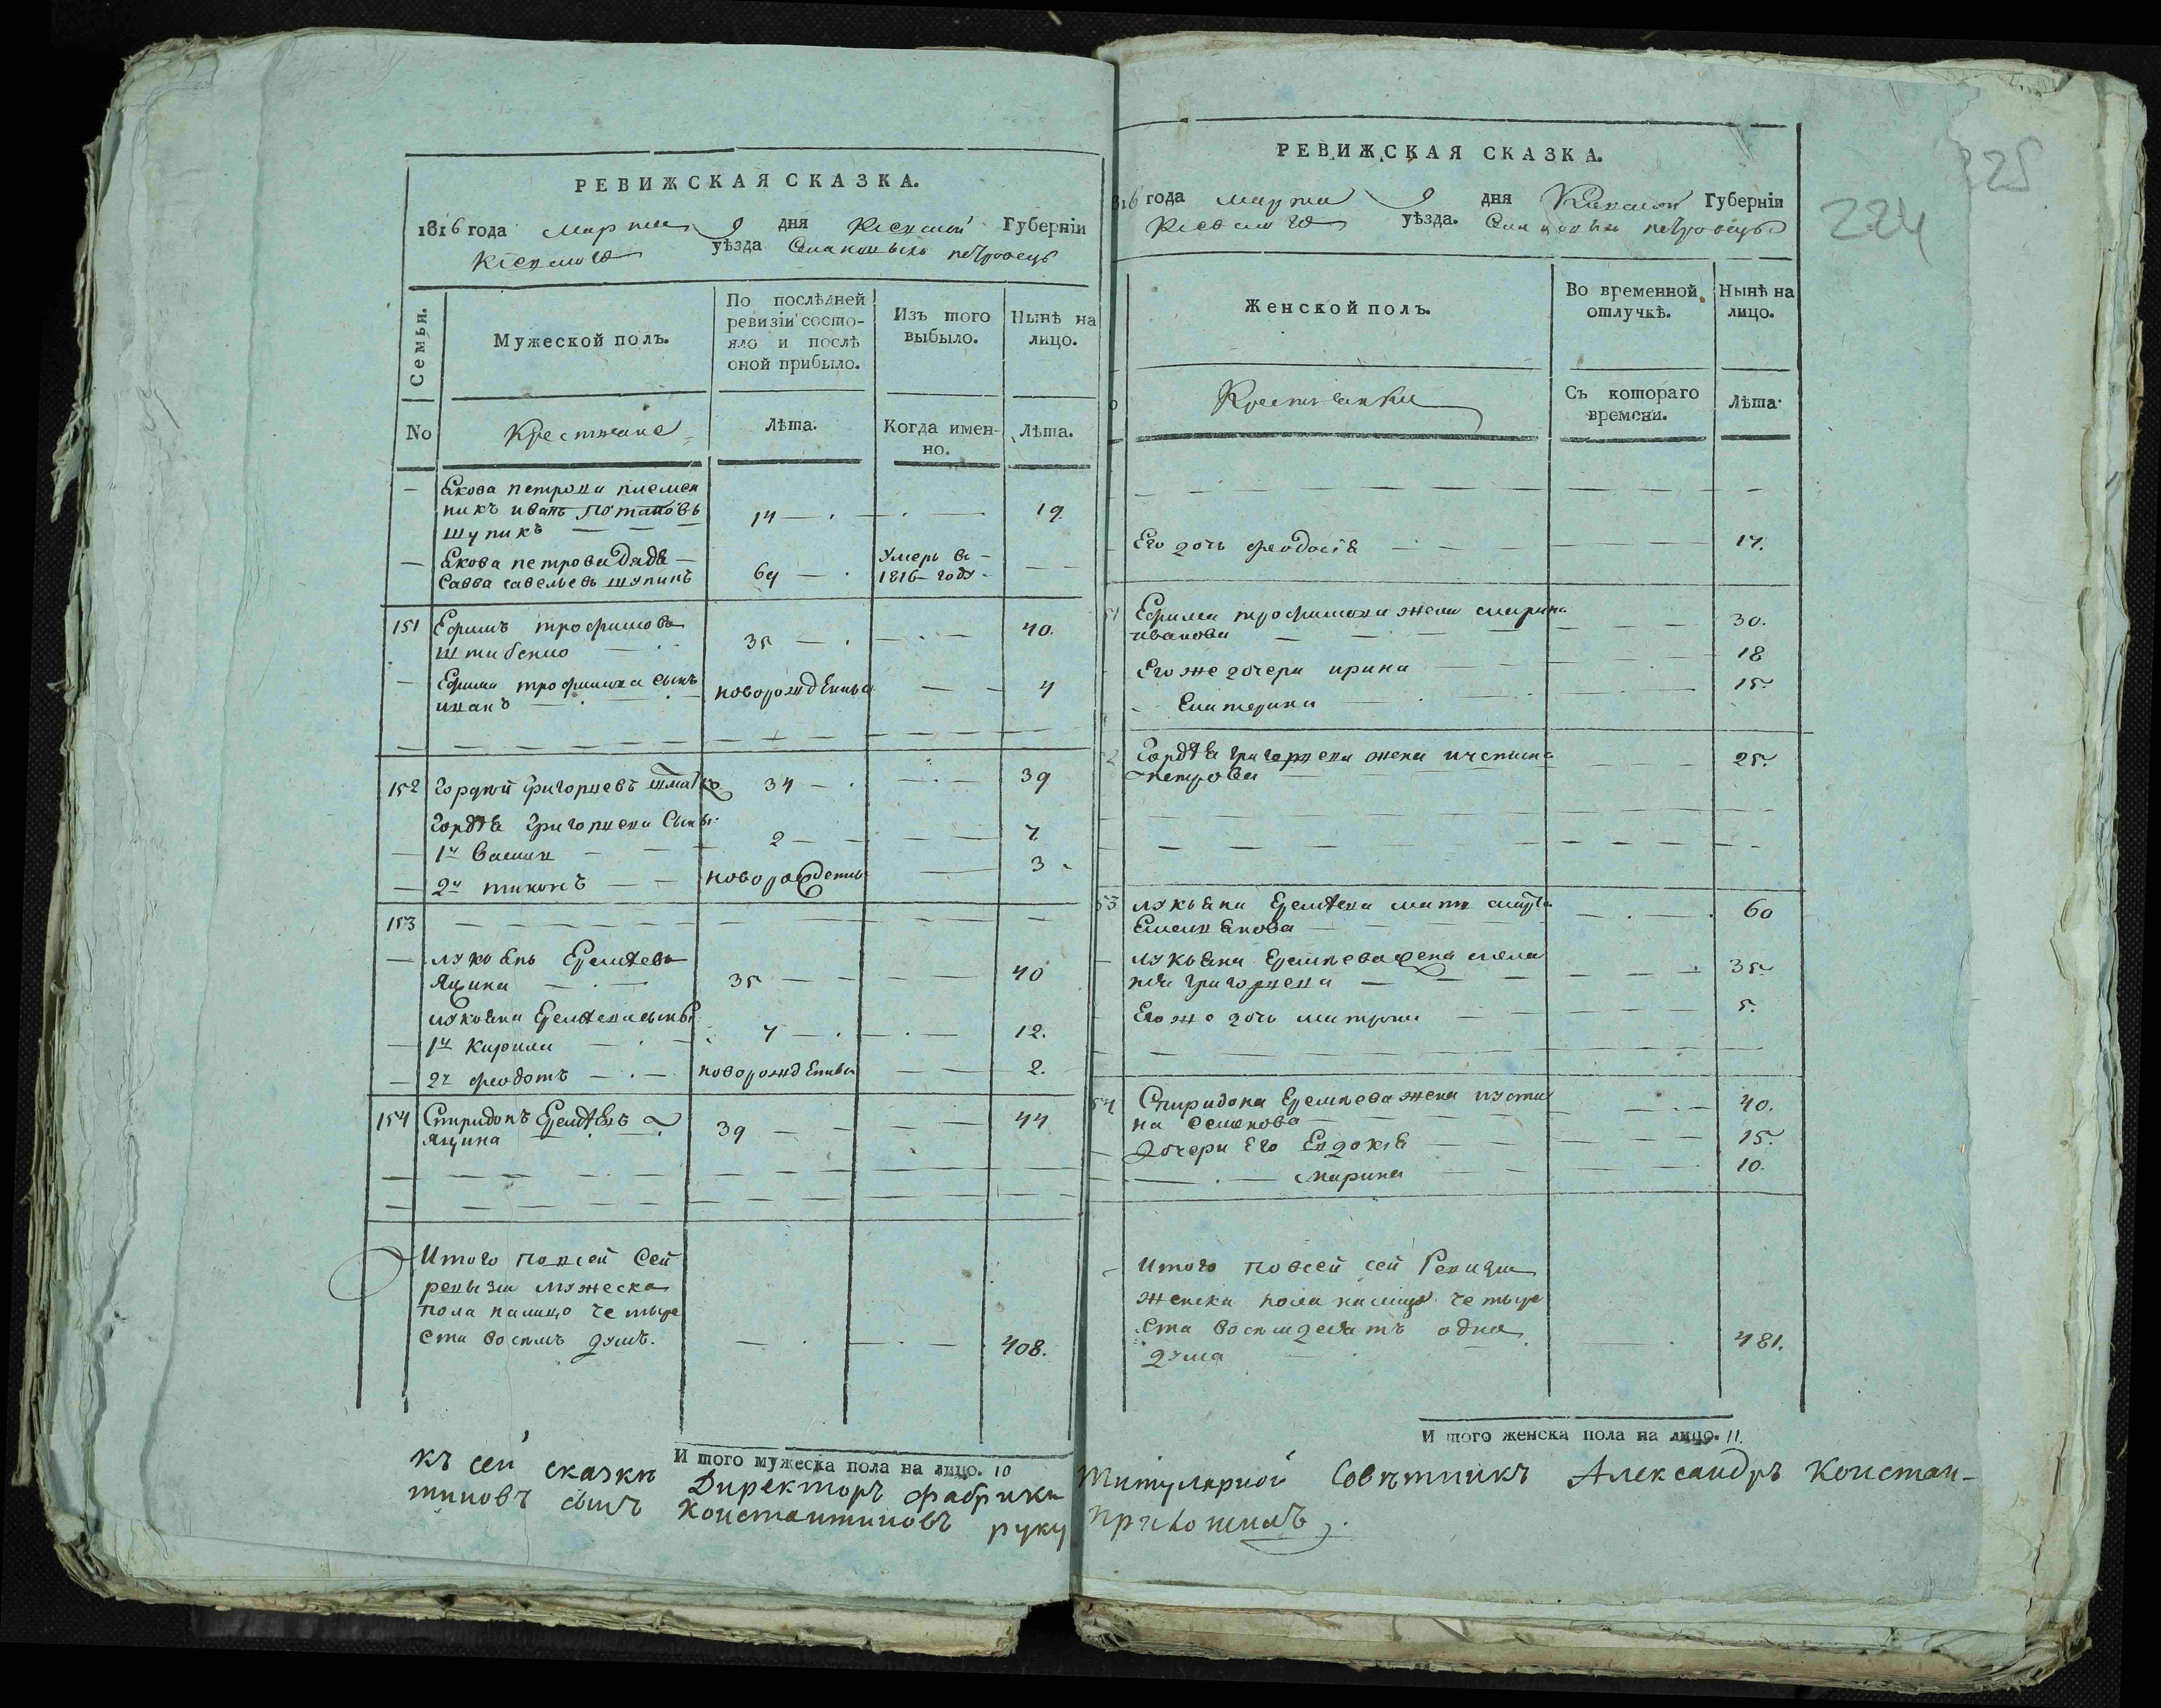 РЕВИЖСКАЯ СКАЗКА.
1816 года марта 9 дня Кіевской Губерніи
Кіевского уѣзда
Семьи.
Мужеской полъ.
По послѣдней
ревизіи состо-
яло и послѣ
оной прибыло.
Изъ того
выбыло.
Нынѣ на
лицо.
No
Крестьяне
Лѣта.
Когда имен-
но.
Лѣта.
Якова петрова племен
никъ иванъ Потаповъ
шупикъ 14 19.
Якова петрова дядя
Савва савельевъ шупикъ 64 Умеръ въ
1816 году
151 Ефимъ трофимовъ
35 40.
Ефима трофимова сынъ
иванъ новорожденный 4
152 Гордѣй Григорьевъ 34 39
Гордѣя Григорьева Сыны
1й Василій 2 7
2й тихонъ новорожденный 3
153
лукьянъ Еремѣевъ
Яцина 35 40
лукьяна Еремѣева сыны
1й Кирила 7 12.
2й феодотъ новорожденный 2.
154 Спиридонъ Еремѣевъ
Яцина 39 44
Итого по всей Сей
ревизіи мужеска
пола налицо четыре
ста восемъ душъ. 408.
И того мужеска пола на лицо. 10
РЕВИЖСКАЯ СКАЗКА.
1816 года марта 9 дня Кіевской Губерніи
Кіевского уѣзда.
224
225
Женской полъ.
Во временной
отлучкѣ.
Нынѣ на
лицо.
Крестьянки
Съ котораго
времени.
Лѣта.
Его дочь феодосія 17.
51 Ефима трофимова жена марина
иванова 30.
Его же дочери ирина 18
Екатерина 15.
2 Гордѣя григорьева жена
петрова 25.
53 лукьяна Еремѣева мать
Емельянова 60
лукьяна Еремѣева жена мела
нія григорьева 35
Его же дочь матрона 5.
54 Спиридона Еремѣева жена усти
на Семенова 40.
дочери Его Евдокія 15.
марина 10.
Итого по всей сей Ревизіи
женска пола налицо четыре
ста восемдесятъ одна
душа 481.
И того женска пола на лицо. 11.
къ сей сказкѣ Директоръ фабрики Титулярной Совѣтникъ Александръ Констан-
тиновъ сынъ Константиновъ руку приложилъ.